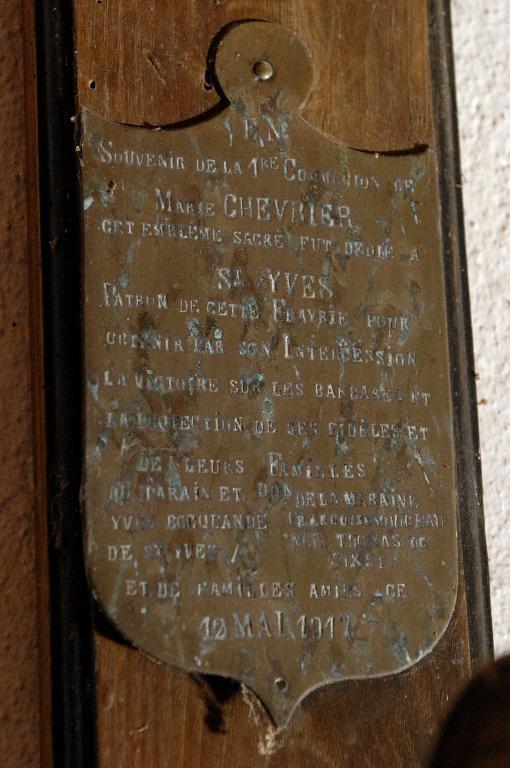 EN
SOUVENIR DE LA 1RE COMMUNION DE
MARIE CHEVRIER
CET EMBLÊME SACRÉ FUT DEDIÉ A
ST YVES
PATRON DE CETTE FRAYRIE POUR
OBTENIR PAR SON INTERCESSION
LA VICTOIRE SUR LES BARBARES ET
LA PROTECTION DE SES FIDÈLES ET
DE LEURS FAMILLES
DU PARAIN ET DE LA MARAINE
YVES BOCQUANDÉ FRANÇOISE
DE ST YVES / NÉE THOMAS DE
ET DE FAMILLES AMIES CE
12 MAI 1917